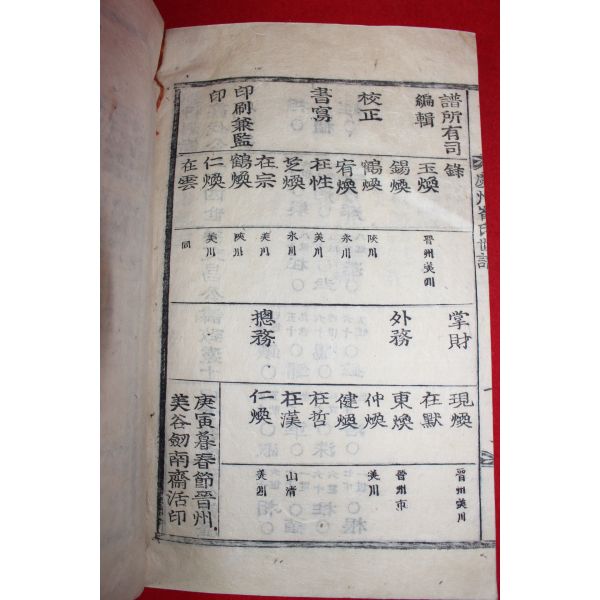 譜所有司錄
編輯 玉煥 晋州美川
錫煥
校正 鶴煥 陜川
宥煥 永川
書寫 在性 美川
芝煥 永川
在宗 美川
印刷兼監 鶴煥 陜川
印 仁煥 美川
在雲 同
掌財 現煥 晋州美川
在默
外務 東煥 晋州市
仲煥 美川
健煥
在哲
在漢 山淸
摠務 仁煥 美川
庚寅暮春節晋州
美谷劒南齋活印
慶州崔氏世譜